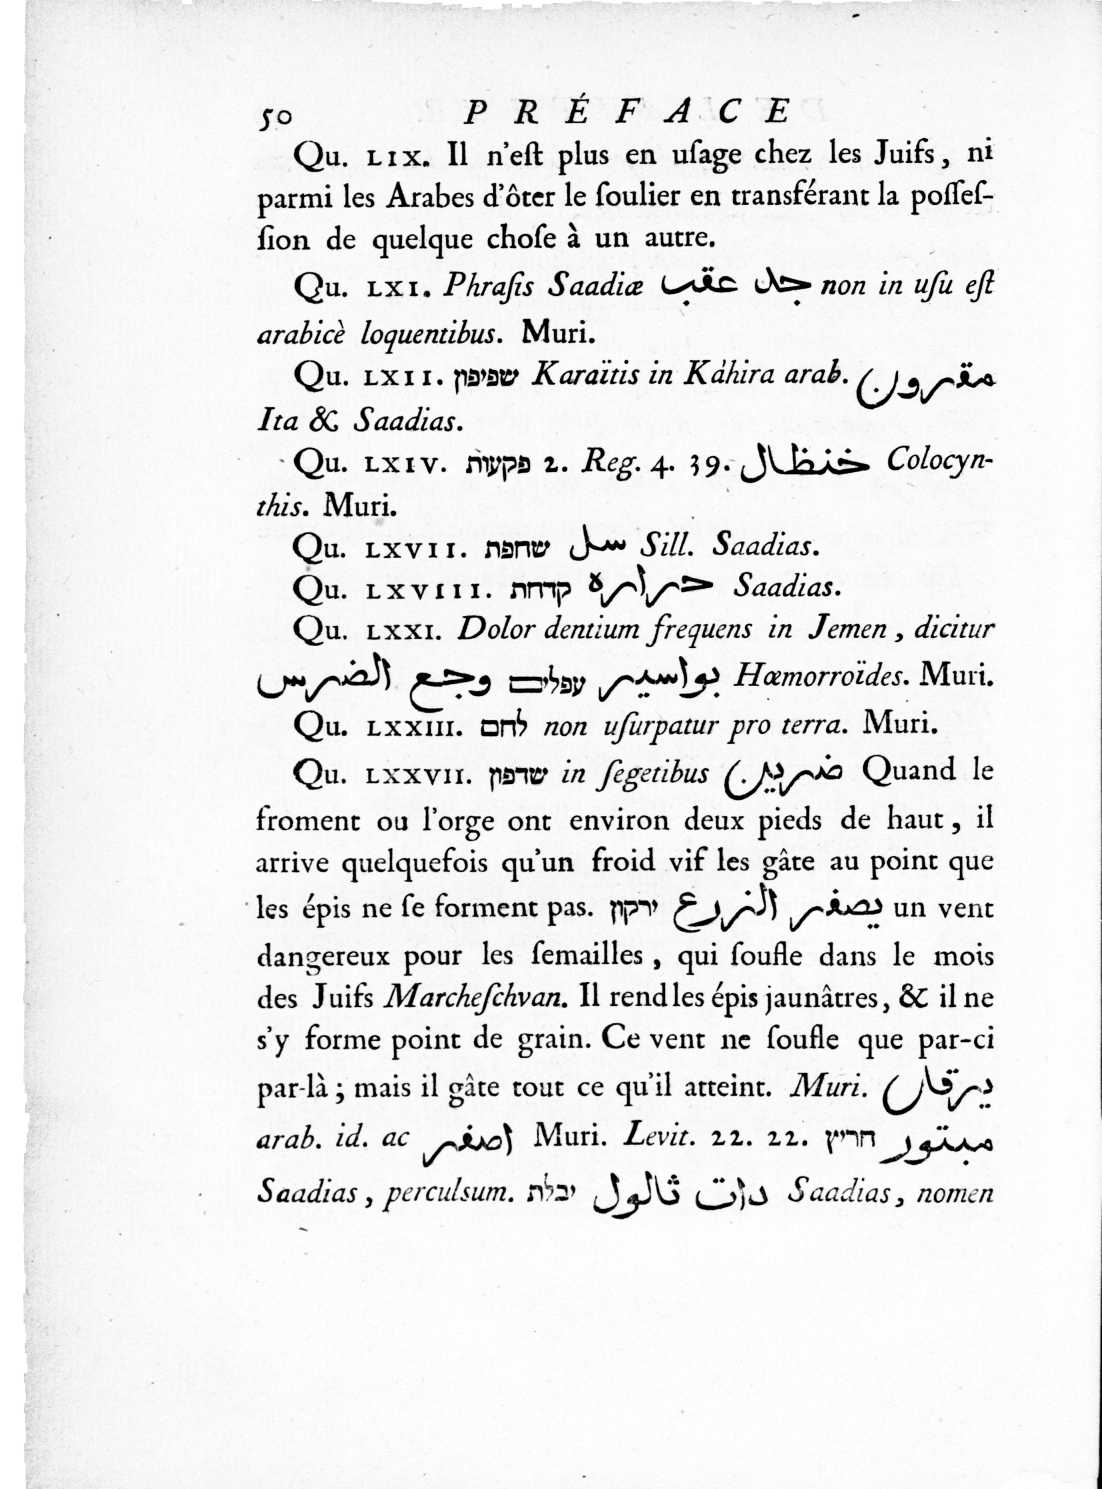 50 PRÉFACE
Qu. LIX. Il n'eſt plus en uſage chez les Juifs, ni
parmi les Arabes d'ôter le ſoulier en transférant la poſſeſ-
ſion de quelque choſe à un autre.
Qu. LXI. Phraſis Saadiæ جد عقب non in uſu eſt
arabicè loquentibus. Muri.
Qu. LXII. שפיפון Karaïtis in Káhira arab. مقرون
Ita & Saadias.
Qu. LXIV. פקעות 2. Reg. 4. 39. خنظال Colocyn-
this. Muri.
Qu. LXVII. שחפת سل Sill. Saadias.
Qu. LXVIII. קדחת حرارة Saadias.
Qu. LXXI. Dolor dentium frequens in Jemen, dicitur
وجع الضرس עפלים بواسير Hæmorroïdes. Muri.
Qu. LXXIII. לחם non uſurpatur pro terra. Muri.
Qu. LXXVII. שדפון in ſegetibus ضريين Quand le
froment ou l'orge ont environ deux pieds de haut, il
arrive quelquefois qu'un froid vif les gâte au point que
les épis ne ſe forment pas. ירקון يصفر الزرع un vent
dangereux pour les ſemailles, qui ſoufle dans le mois
des Juifs Marcheſchvan. Il rend les épis jaunâtres, & il ne
s'y forme point de grain. Ce vent ne ſoufle que par-ci
par-là; mais il gâte tout ce qu'il atteint. Muri. يرقان
arab. id. ac اصفر Muri. Levit. 22. 22. חריץ مبتور
Saadias, perculsum. יבלת دات ثالول Saadias, nomen